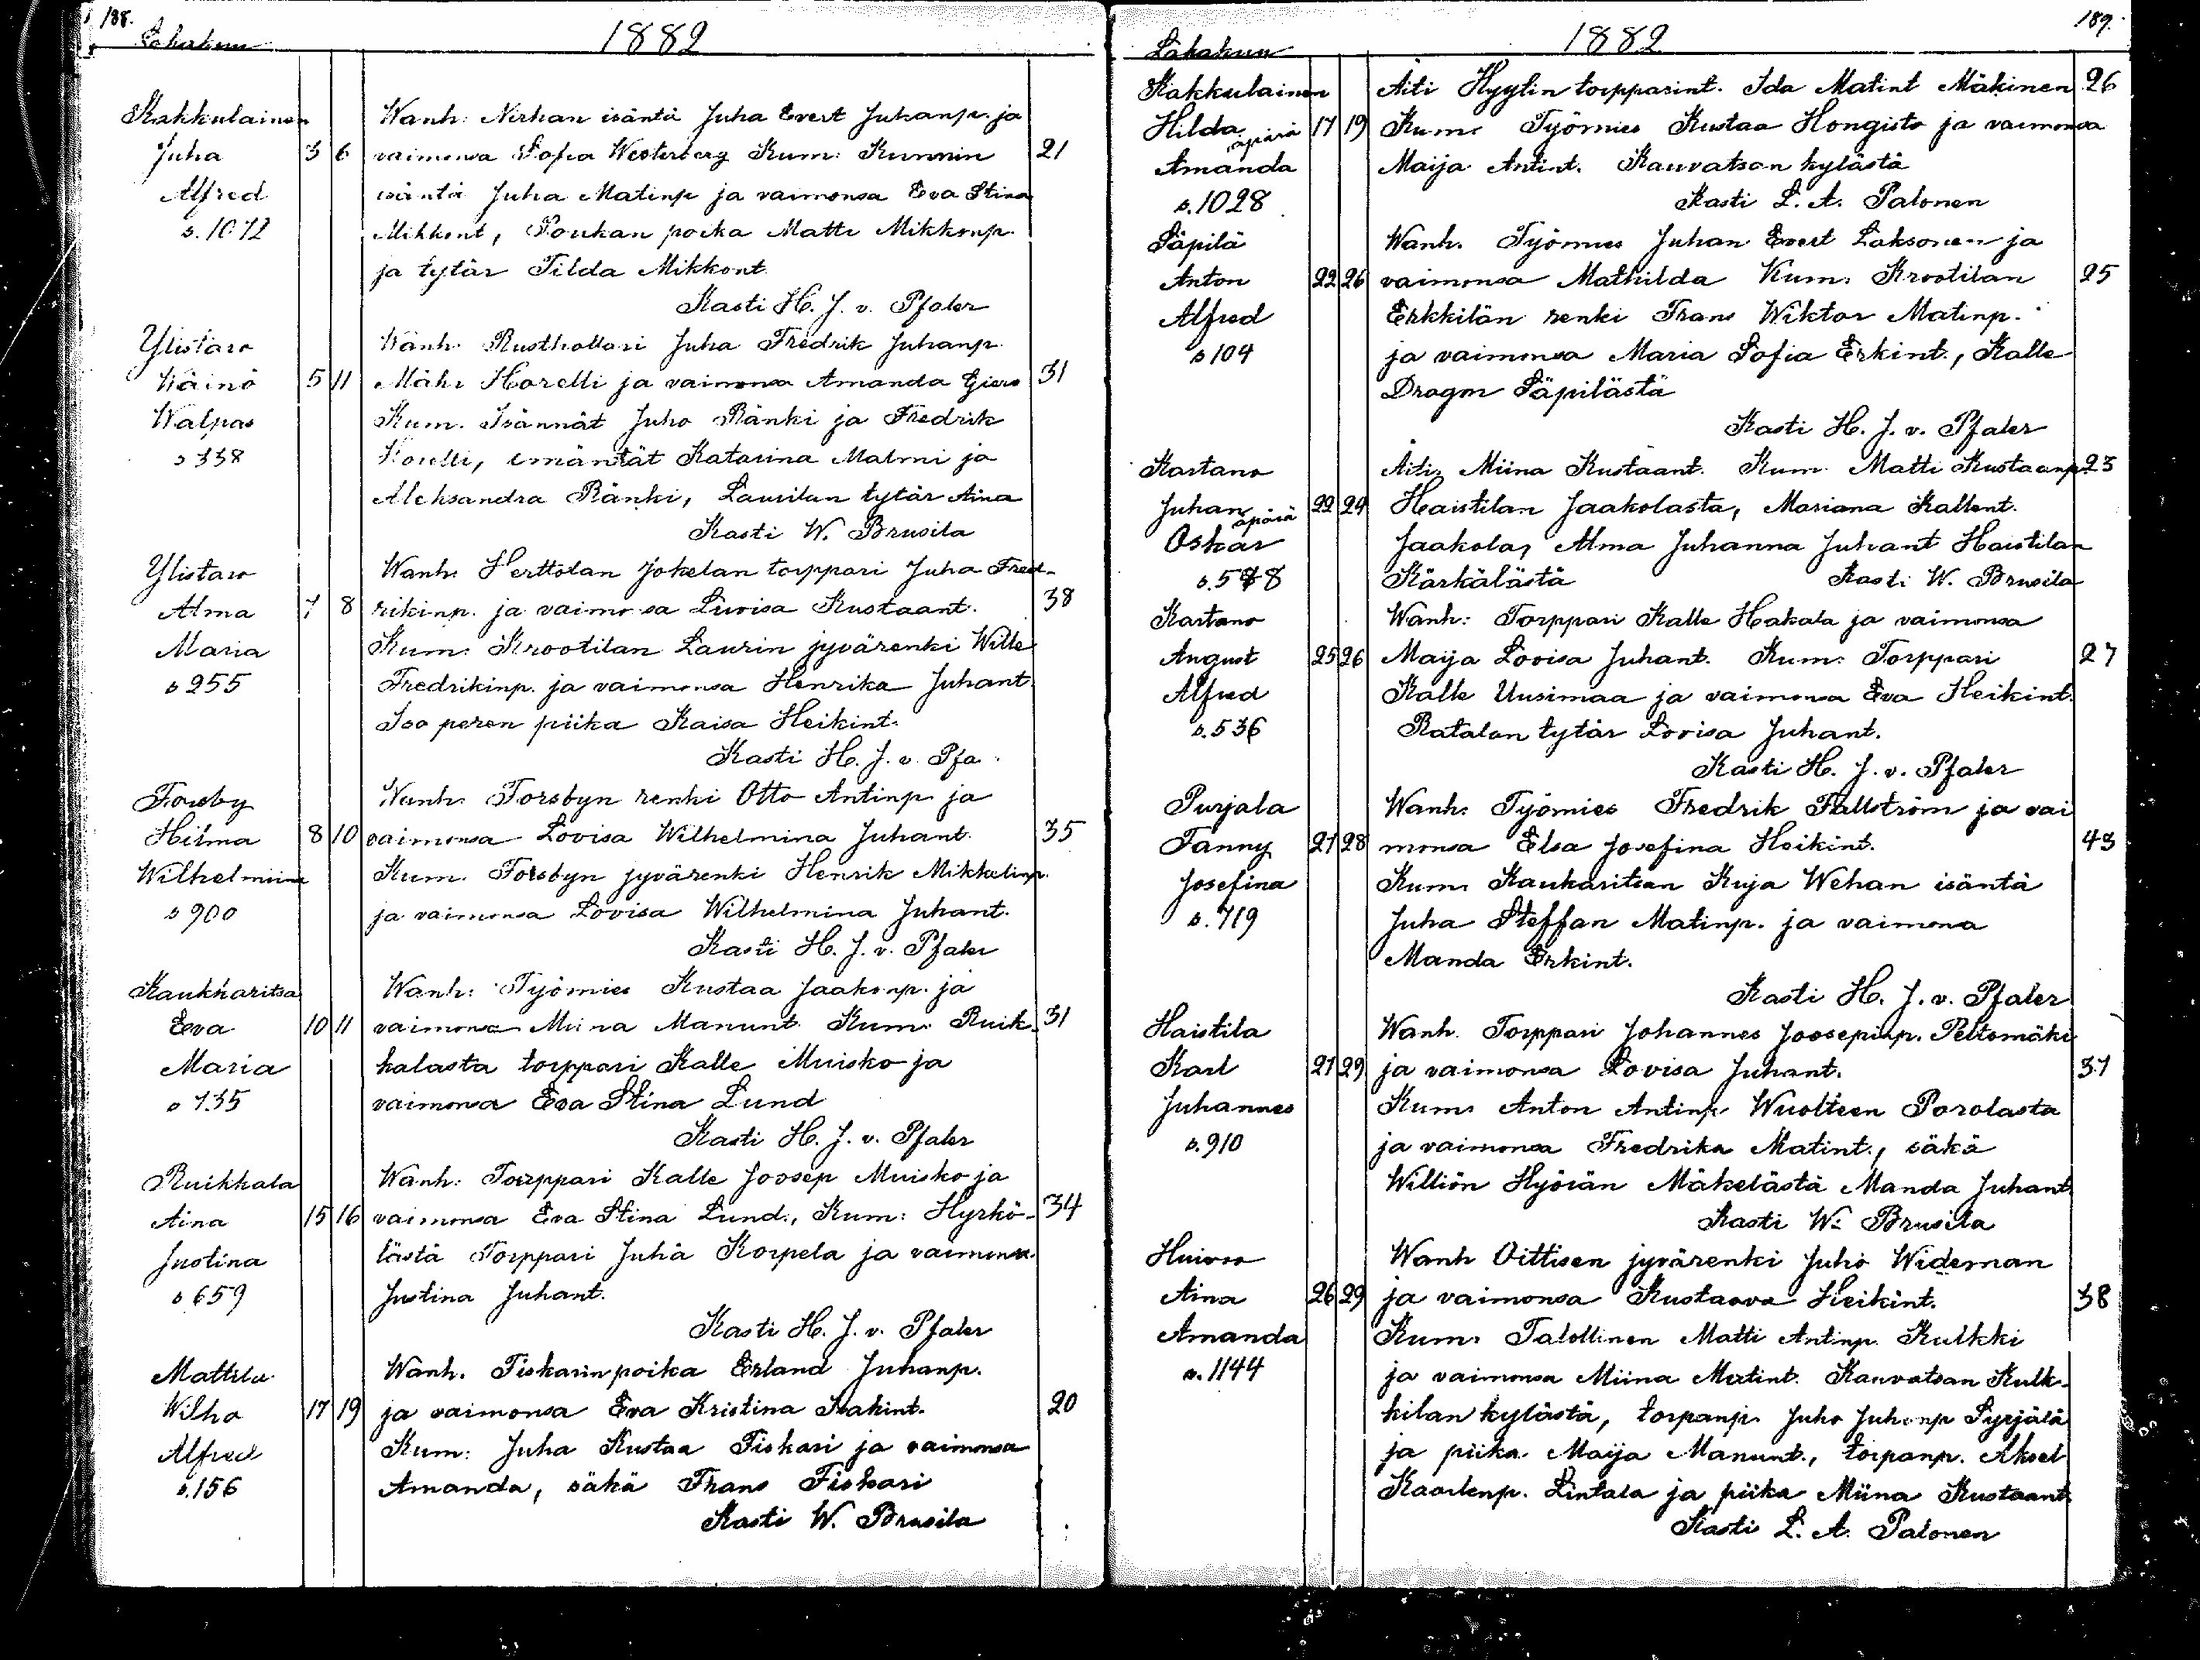 188.
1882
Lokakuu
Kakkulainen
Wanh: Nirhan isäntä Juha Evert Juhanp. ja
Juha 3 6 vaimonsa Sofia Westerberg Kum: Kunnin 21
Alfred isäntä Juha Matinp ja vaimonsa Eva Stina
s. 1072 Mikkont, Poukan poika Matti Mikkonp.
ja tytär Tilda Mikkont.
Kasti H. J. v. Pfaler
Ylistaro Wanh. Rusthollari Juha Fredrik Juhanp.
Wäinö 5 11 Mähr Horelli ja vaimonsa Amanda Gjers 31
Walpas Kum. Isännät Juho Ränki ja Fredrik
s 338 Horelli, emäntät Katarina Malmi ja
Aleksandra Ränki, Laurilan tytär Aina
Kasti W. Brusila
Ylistaro Wanh: Herttolan Jokelan torppari Juha Fred-
Alma 7 8 rikinp. ja vaimonsa Liwisa Kustaant. 38
Maria Kum: Krootilan Laurin jyvärenki Wille
s 255 Fredrikinp. ja vaimonsa Henrika Juhant.
Iso peren piika Kaisa Heikint.
Kasti H. J. v. Pfa
Forsby Wanh. Forsbyn renki Otto Antinp ja
Hilma 8 10 vaimonsa Lovisa Wilhelmina Juhant. 35
Wilhelmiina Kum. Forsbyn jyvärenki Henrik Mikkelinp.
s 900 ja vaimonsa Lovisa Wilhelmina Juhant.
Kasti H. J. v. Pfaler
Kaukharitsa Wanh: Työmies Kustaa Jaakonp. ja
Eva 10 11 vaimonsa Miina Manunt. Kum. Ruik- 31
Maria kalasta torppari Kalle Muisko ja
s 735 vaimonsa Eva Stina Lund
Kasti H. J. v. Pfaler
Ruikkala Wanh: Torppari Kalle Joosep Muisko ja
Aina 15 16 vaimonsa Eva Stina Lund., Kum: Hyrkö- 34
Justina lästä Torppari Juha Korpela ja vaimonsa
s 659 Justina Juhant.
Kasti H. J. v. Pfaler
Mattila Wanh. Fiskarin poika Erland Juhanp.
Wilho 17 19 ja vaimonsa Eva Kristina Isakint. 20
Alfred Kum: Juha Kustaa Fiskari ja vaimonsa
s. 156 Amanda, säkä Frans Fiskari
Kasti W. Brusila
189.
1882
Lokakuu
Kakkulainen Äiti Hyytin torpparint. Ida Matint Mäkinen 26
Hilda äpärä 17 19 Kum: Työmies Kustaa Hongisto ja vaimonsa
Amanda Maija Antint. Kauvatsan kylästä
s. 1028 Kasti L. A. Palonen
Säpilä Wanh. Työmies Juhan Evert Laksonen ja
Anton 22 26 vaimonsa Mathilda Kum: Krootilan 25
Alfred Erkkilän renki Frans Wiktor Matinp.
s 104 ja vaimonsa Maria Sofia Erkint., Kalle
Dragon Säpilästä
Kasti H. J. v. Pfaler
Kartano Äiti, Miina Kustaant. Kum. Matti Kustaanp 23
Juhan äpärä 22 24 Haistilan Jaakolasta, Mariana Kallent.
Oskar Jaakola, Alma Juhanna Juhant Haistilan
s. 578 Kärkälästä Kasti W. Brusila
Kartano Wanh: Torppari Kalle Hakala ja vaimonsa
August 25 26 Maija Lovisa Juhant. Kum: Torppari 27
Alfred Kalle Uusimaa ja vaimonsa Eva Heikint.
s. 536 Ratalan tytär Lovisa Juhant.
Kasti H. J. v. Pfaler
Purjala Wanh: Työmies Fredrik Fallström ja vai
Fanny 21 28 monsa Elsa Josefina Heikint. 43
Josefina Kum: Kaukaritsan Kuja Wehan isäntä
s. 719 Juha Steffan Matinp. ja vaimonsa
Manda Erkint.
Kasti H. J. v. Pfaler
Haistila Wanh. Torppari Johannes Joosepinp. Peltomäki
Karl 21 29 ja vaimonsa Lovisa Juhant. 37
Juhannes Kum: Anton Antinp Wuolteen Porolasta
s. 910 ja vaimonsa Fredrika Matint., säkä
Williön Hyörän Mäkelästä Manda Juhant
Kasti W. Brusila
Huivoo Wanh Oittisen jyvärenki Juho Wideman
Aina 26 29 ja vaimonsa Kustaava Heikint. 38
Amanda Kum: Talollinen Matti Antinp. Kulkki
s. 1144 ja vaimonsa Miina Matint. Kauvatsan Kulk-
kilan kylästä, torpanp. Juho Juhonp Syrjälä
ja piika Maija Manunt., torpanp. Aksel
Kaarlenp. Lintala ja piika Miina Kustaant
Kasti L. A. Palonen